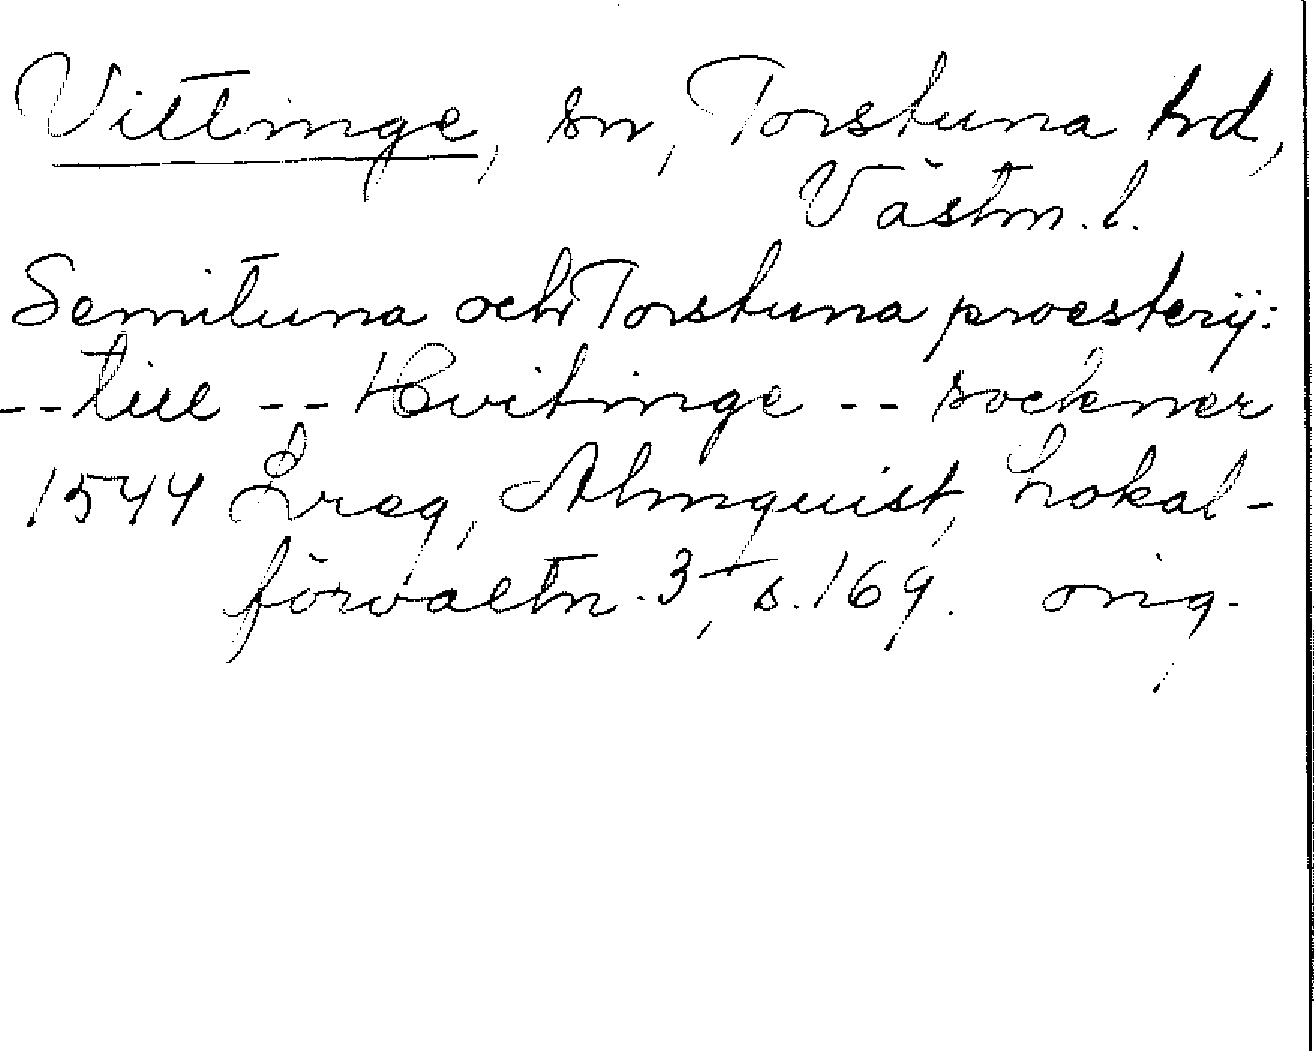 Vittinge, sn, Torstuna hd,
Västm. l.
Semituna och Torstuna proesterij:
-- till -- Hvitinge -- sockner
1544 Lreg, Almquist, Lokal-
förvaltn. 3, s. 169. orig.